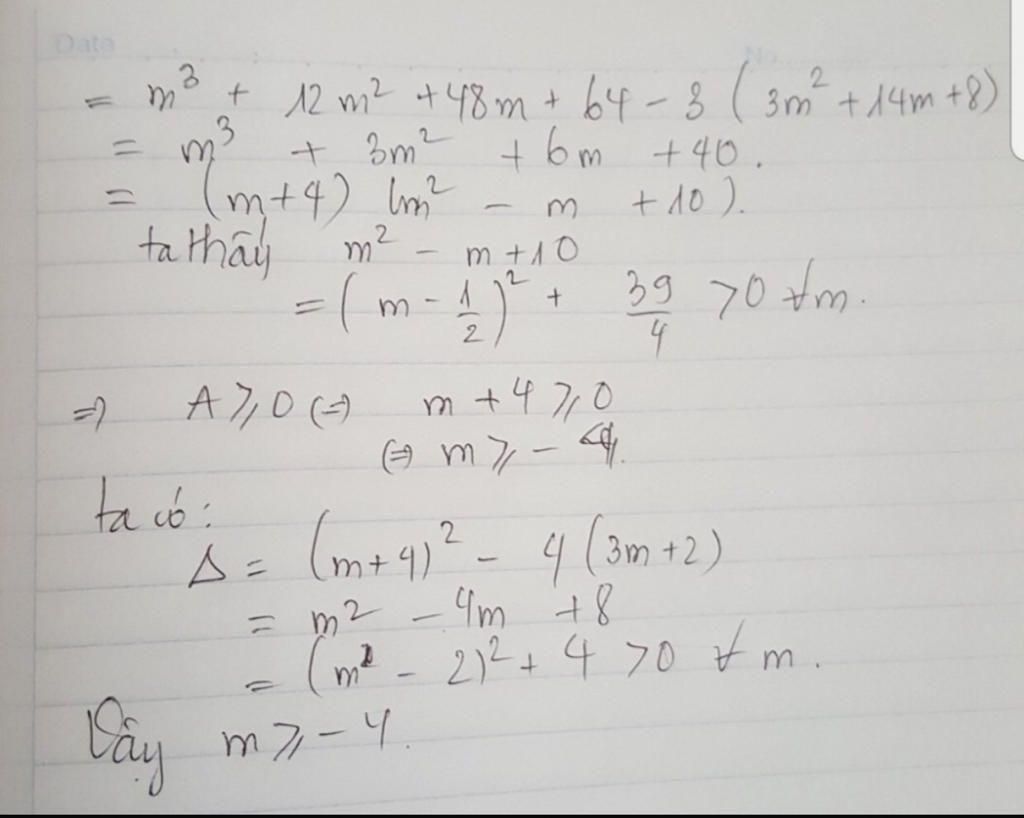 Data No
= m³ + 12m² + 48m + 64 - 3 (3m² + 14m + 8)
= m³ + 3m² + 6m + 40.
= (m+4) (m² - m + 10).
ta thấy m² - m + 10
= (m - 1/2)² + 39/4 > 0 ∀m.
=> A ⩾ 0 (=) m + 4 ⩾ 0
(=) m ⩾ - 4.
ta có:
Δ = (m+4)² - 4 (3m+2)
= m² - 4m + 8
= (m - 2)² + 4 > 0 ∀ m.
Vậy m ⩾ - 4.